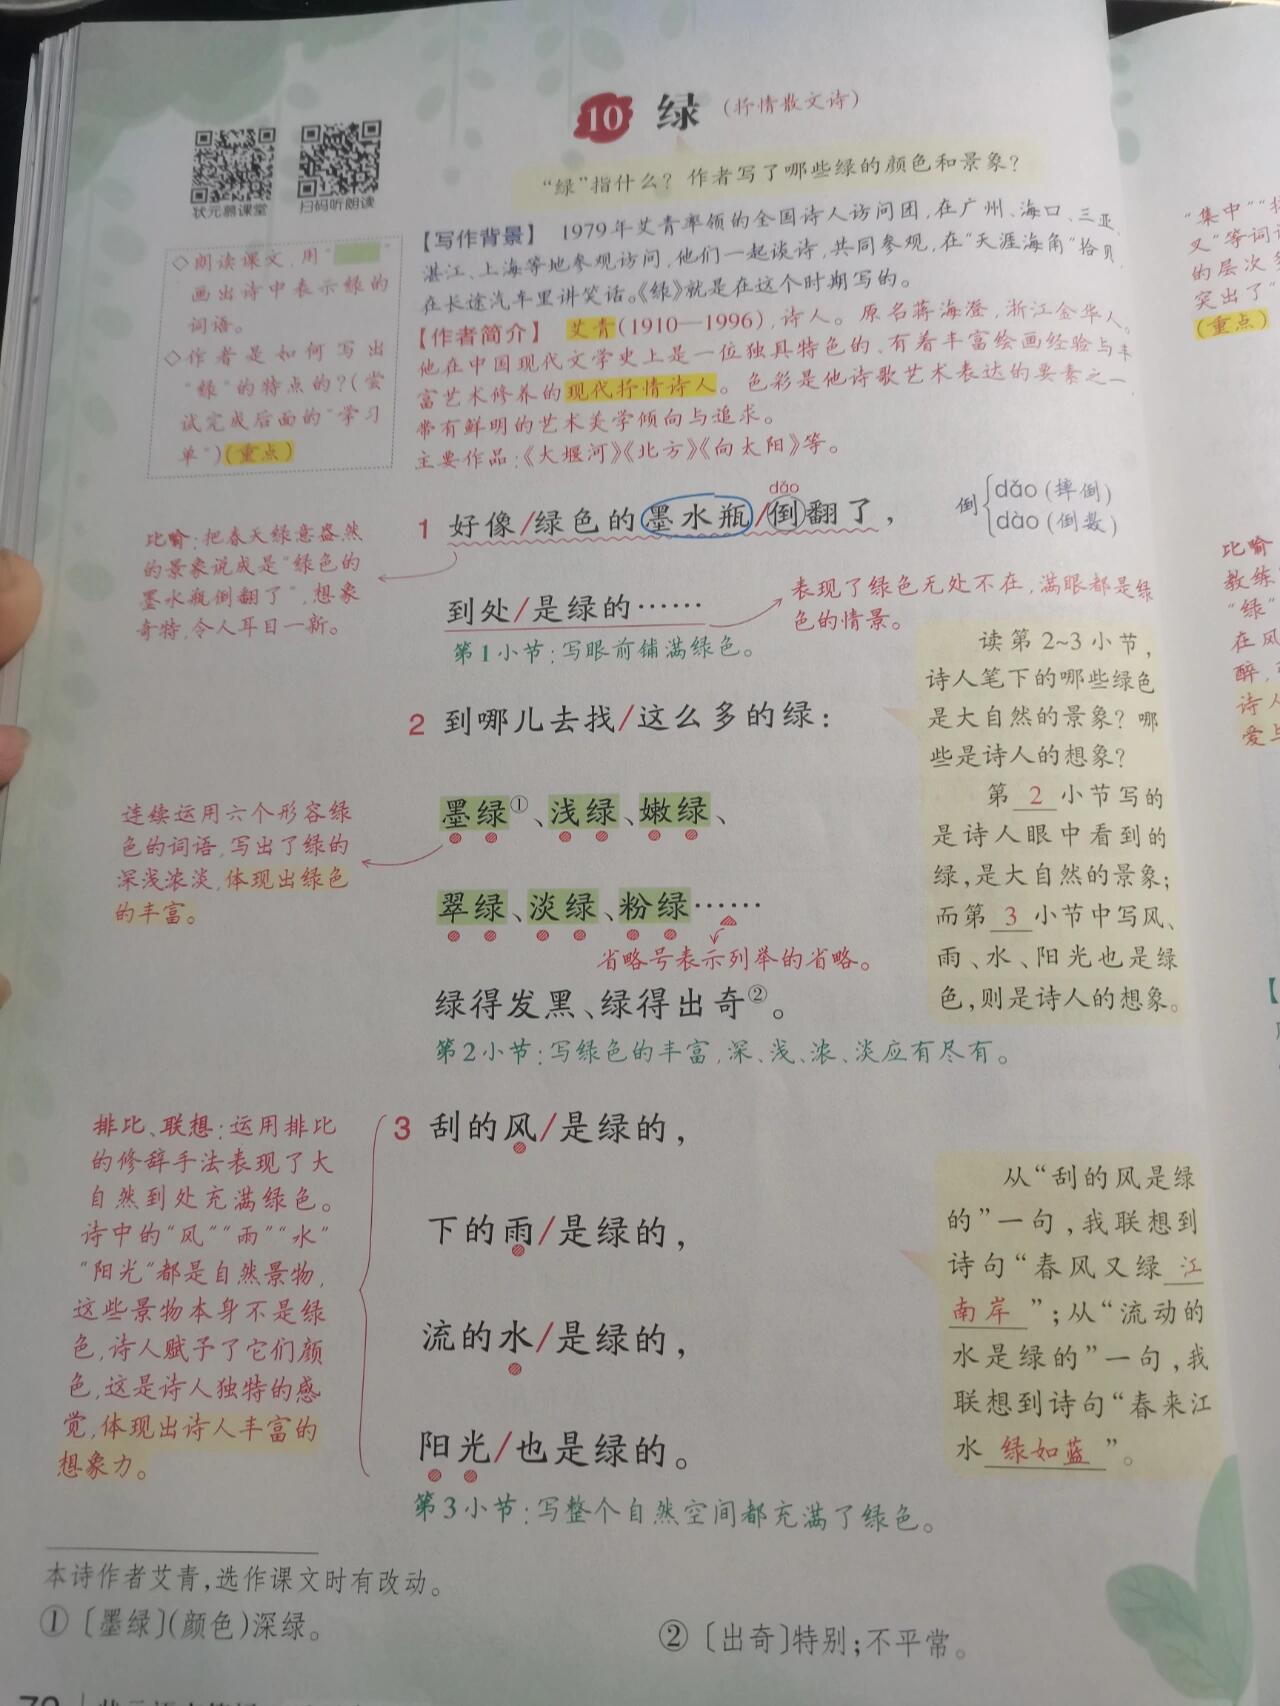 10 绿 (抒情散文诗)
“绿”指什么？作者写了哪些绿的颜色和景象？
状元易课堂
扫码听朗读
◇朗读课文，用“ ”
画出诗中表示绿的
词语。
◇作者是如何写出
“绿”的特点的？(尝
试完成后面的“学习
单”)(重点)
【写作背景】 1979年艾青率领的全国诗人访问团，在广州、海口、三亚、
湛江、上海等地参观访问，他们一起谈诗，共同参观，在“天涯海角”拾贝，
在长途汽车里讲笑话。《绿》就是在这个时期写的。
【作者简介】 艾青(1910—1996)，诗人。原名蒋海澄，浙江金华人。
他在中国现代文学史上是一位独具特色的、有着丰富绘画经验与丰
富艺术修养的现代抒情诗人。色彩是他诗歌艺术表达的要素之一
带有鲜明的艺术美学倾向与追求。
主要作品：《大堰河》《北方》《向太阳》等。
dǎo
1 好像/绿色的墨水瓶/倒翻了，
倒 dǎo (摔倒)
dào (倒数)
比喻：把春天绿意盎然
的景象说成是“绿色的
墨水瓶倒翻了”，想象
奇特，令人耳目一新。
到处/是绿的……
表现了绿色无处不在，满眼都是绿
色的情景。
第1小节：写眼前铺满绿色。
2 到哪儿去找/这么多的绿：
读第2~3小节，
诗人笔下的哪些绿色
是大自然的景象？哪
些是诗人的想象？
第 2 小节写的
是诗人眼中看到的
绿，是大自然的景象；
而第 3 小节中写风、
雨、水、阳光也是绿
色，则是诗人的想象。
连续运用六个形容绿
色的词语，写出了绿的
深浅浓淡，体现出绿色
的丰富。
墨绿①、浅绿、嫩绿、
翠绿、淡绿、粉绿……
省略号表示列举的省略。
绿得发黑、绿得出奇②。
第2小节：写绿色的丰富，深、浅、浓、淡应有尽有。
排比、联想：运用排比
的修辞手法表现了大
自然到处充满绿色。
诗中的“风”“雨”“水”
“阳光”都是自然景物，
这些景物本身不是绿
色，诗人赋予了它们颜
色，这是诗人独特的感
觉，体现出诗人丰富的
想象力。
3 刮的风/是绿的，
下的雨/是绿的，
流的水/是绿的，
阳光/也是绿的。
第3小节：写整个自然空间都充满了绿色。
从“刮的风是绿
的”一句，我联想到
诗句“春风又绿 江
南岸 ”；从“流动的
水是绿的”一句，我
联想到诗句“春来江
水 绿如蓝 ”。
本诗作者艾青，选作课文时有改动。
①〔墨绿〕(颜色)深绿。
②〔出奇〕特别；不平常。
“集中”
又”等词
的层次
突出了“
(重点)
比喻
教练
“绿”
在风
醉，
诗人